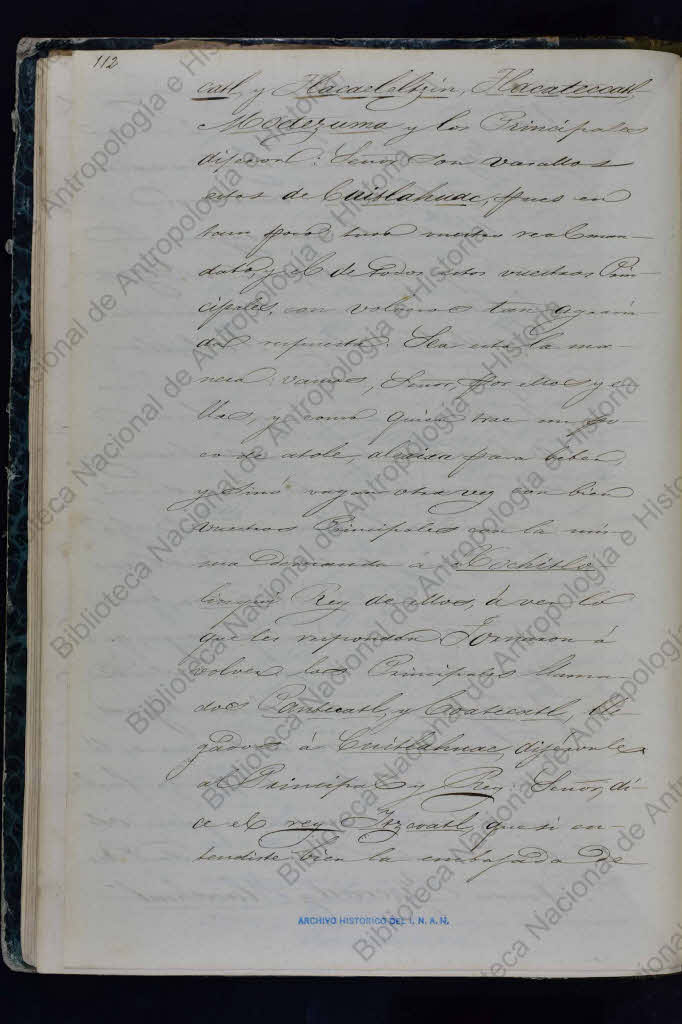 112
catl, y Tlacaeleltzin, Tlacateccatl
Modezuma y los Principales
dijeron: Señor, son vasallos
estos de Cuitlahuac, pues en
tan poco tuvo vuestro real man-
dato, y el de todos estos vuestros Prin-
cipales, con volvernos tan
respuesta: Sea esta la ma-
nera: vamos, Señor, por ellos y e-
llas, y como quien trae un po-
co de atole, alexixa para beber,
y sinó vayan otra vez con bien
vuestros Principales con la mis-
ma demanda á Xochitlo
linqui Rey de ellos, á ver lo
que les respondan. Tornaron á
volver los Principales llama-
dos Pantecatl, y Coatecatl, lle-
gados á Cuitlahuac, dijéronle
al Principal y Rey: Señor, dí-
ce el rey Ytzcoatl, que si en-
tendiste bien la embajada de
ARCHIVO HISTORICO DEL I. N. A. H.
Biblioteca Nacional de Antropología e Historia